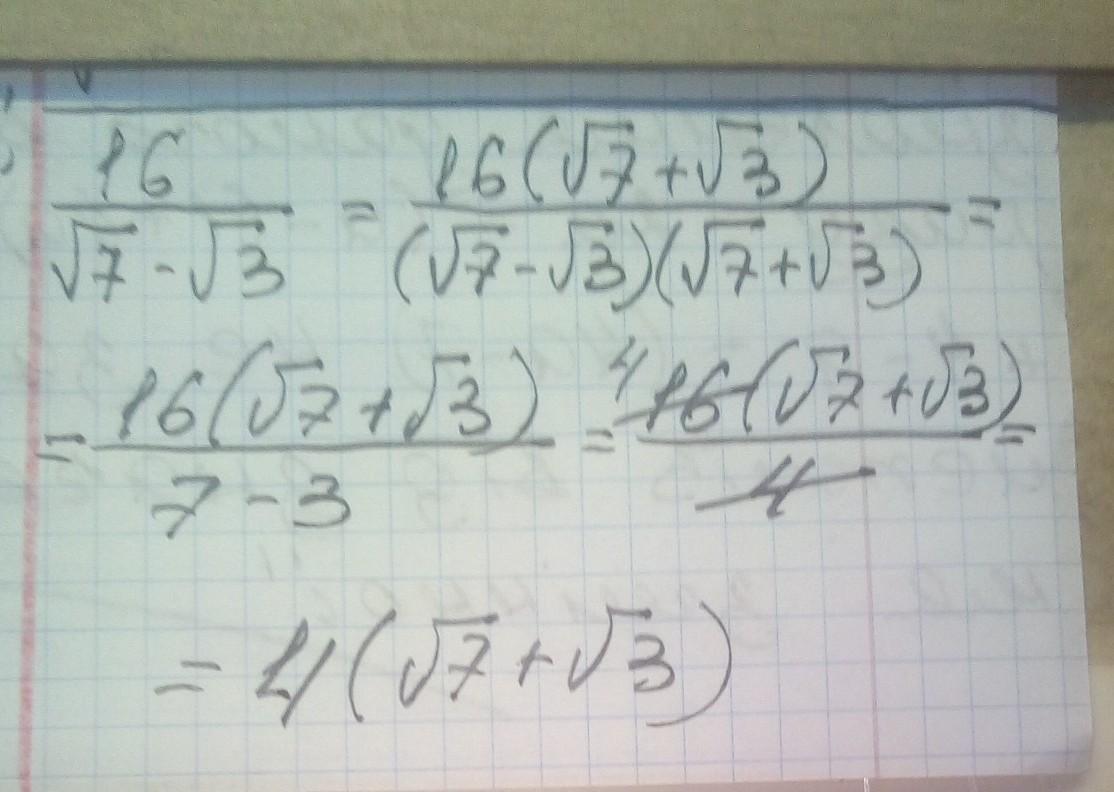 16/(√7-√3) = 16(√7+√3)/((√7-√3)(√7+√3)) =
= 16(√7+√3)/(7-3) = 4 16(√7+√3)/4 =
= 4(√7+√3)